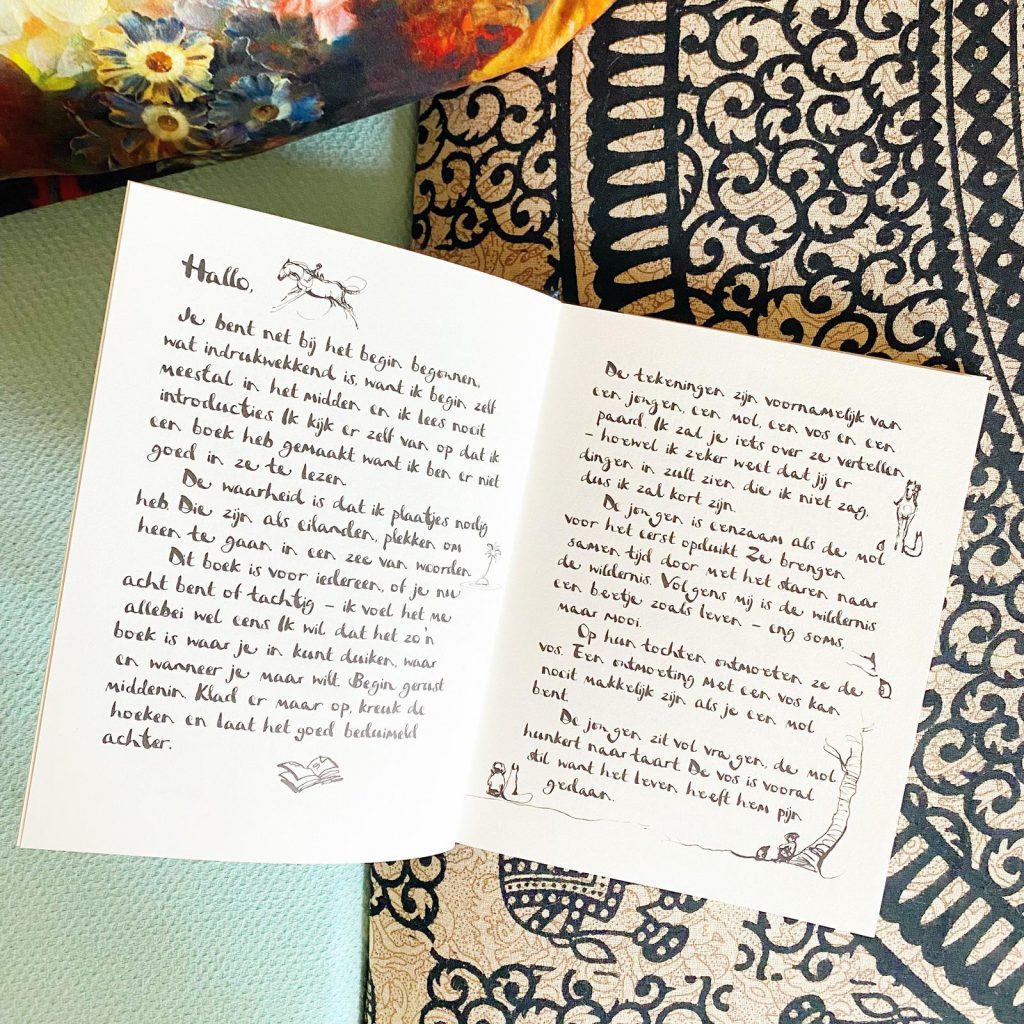 Hallo,
Je bent net bij het begin begonnen,
wat indrukwekkend is, want ik begin zelf
meestal in het midden en ik lees nooit
introducties. Ik kijk er zelf van op dat ik
een boek heb gemaakt want ik ben er niet
goed in ze te lezen.
De waarheid is dat ik plaatjes nodig
heb. Die zijn als eilanden, plekken om
heen te gaan in een zee van woorden.
Dit boek is voor iedereen, of je nu
acht bent of tachtig – ik voel het me
allebei wel eens. Ik wil dat het zo'n
boek is waar je in kunt duiken, waar
en wanneer je maar wilt. Begin gerust
middenin. Klad er maar op, kreuk de
hoeken en laat het goed beduimeld
achter.
De tekeningen zijn voornamelijk van
een jongen, een mol, een vos en een
paard. Ik zal je iets over ze vertellen
– hoewel ik zeker weet dat jij er
dingen in zult zien die ik niet zag,
dus ik zal kort zijn.
De jongen is eenzaam als de mol
voor het eerst opduikt. Ze brengen
samen tijd door met het staren naar
de wildernis. Volgens mij is de wildernis
een beetje zoals leven – eng soms,
maar mooi.
Op hun tochten ontmoeten ze de
vos. Een ontmoeting met een vos kan
nooit makkelijk zijn als je een mol
bent.
De jongen zit vol vragen, de mol
hunkert naar taart. De vos is vooral
stil want het leven heeft hem pijn
gedaan.